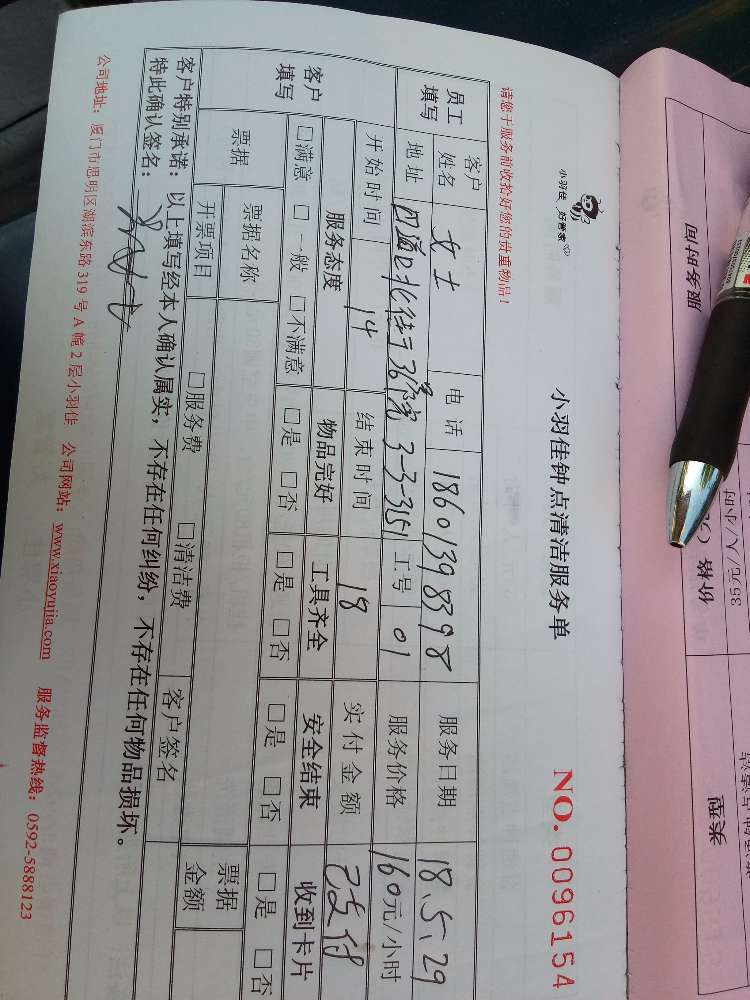 小羽佳 好管家
小羽佳钟点清洁服务单
NO. 0096154
请您于服务前收捡好您的贵重物品!
员工填写 客户姓名 女士 电话 18601398398 服务日期 18.5.29
地址 北街 36号院 3-3-351 工号 01 服务价格 160元/小时
开始时间 14 结束时间 18 实付金额 已支付
客户填写 服务态度 物品完好 工具齐全 安全结束 收到卡片
□满意 □一般 □不满意 □是 □否 □是 □否 □是 □否 □是 □否
票据 票据名称 票据金额
开票项目 □服务费 □清洁费 客户签名
客户特别承诺:以上填写经本人确认属实,不存在任何纠纷,不存在任何物品损坏。
特此确认签名:
公司地址:厦门市思明区湖滨东路319号A幢2层小羽佳 公司网站:www.xiaoyujia.com 服务监督热线:0592-5888123
服务时间
价格(
35元/人/小时
类型